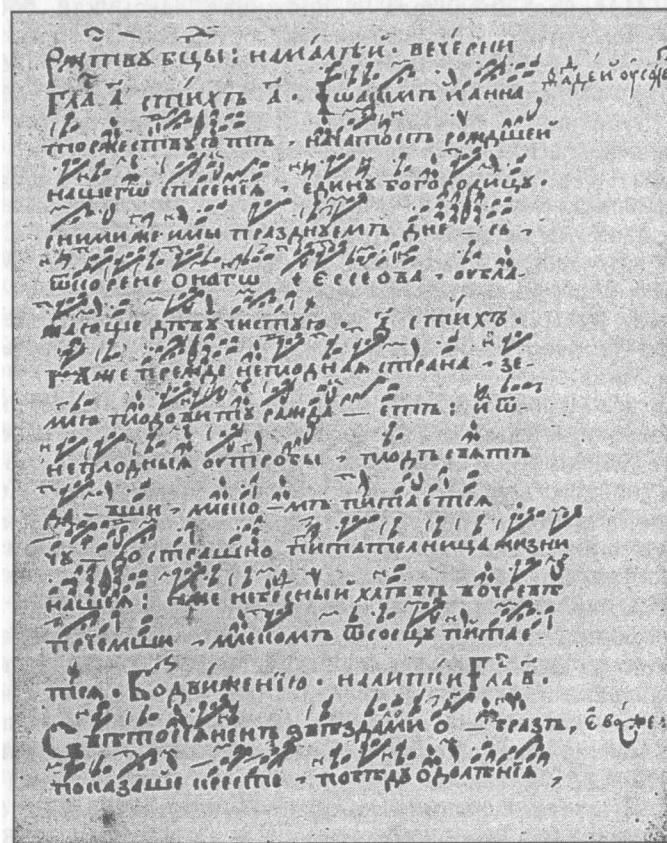 Ржтвꙋ бцы: на малѣй · вечерни
Гла а҃ стихъ а҃ · Іѡакимъ и анна
торжествꙋетъ · начатокъ рождшей
нашегѡ спасенїя · единꙋ богородицꙋ ·
снимиже имы празднꙋемъ дне — сь ·
ѿ корене онагѡ · ессеова · ꙋбла
жающе дѣвꙋ чистꙋю · стихъ ·
Яже прежде неплодная страна · зе-
млю плодовитꙋ ражда — етъ : и ѿ
неплодныя ꙋтробы · плодъ святъ
млеко — мъ питается
чꙋ — до страшно питателница жизни
нашея : иже небесный хлѣбъ во чревѣ
млекомъ питае-
тся · Воздвиженїю · на литїи Гла в҃ ·
звѣздами о — бразъ,
показаше кресте · побѣдꙋ одолѣнїя ,